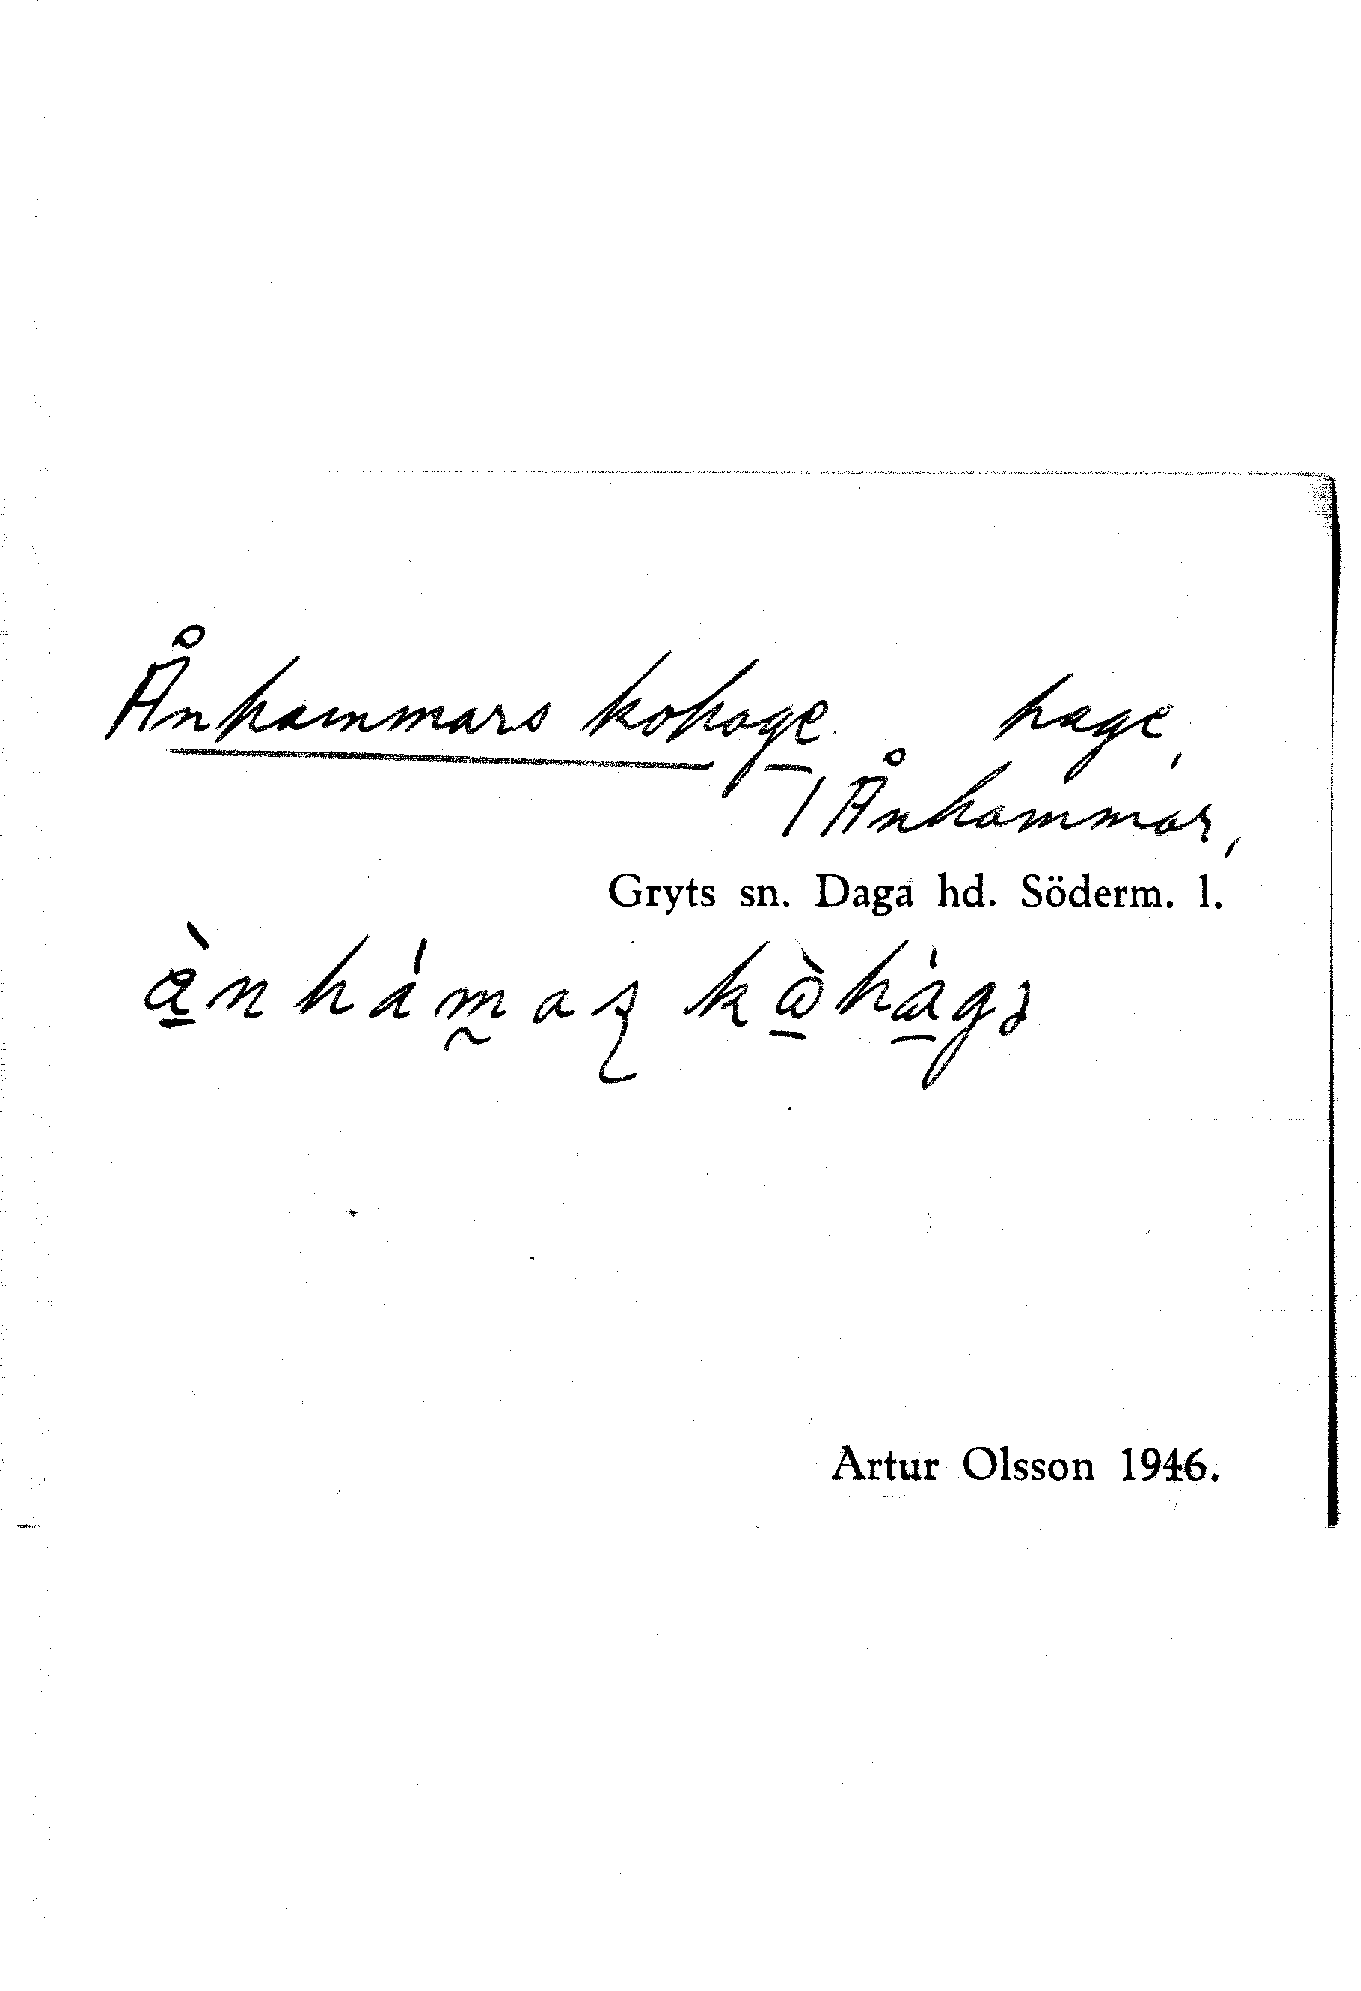 Ånhammars kohage hage,
/ Ånhammar,
Gryts sn. Daga hd. Söderm. l.
Artur Olsson 1946.